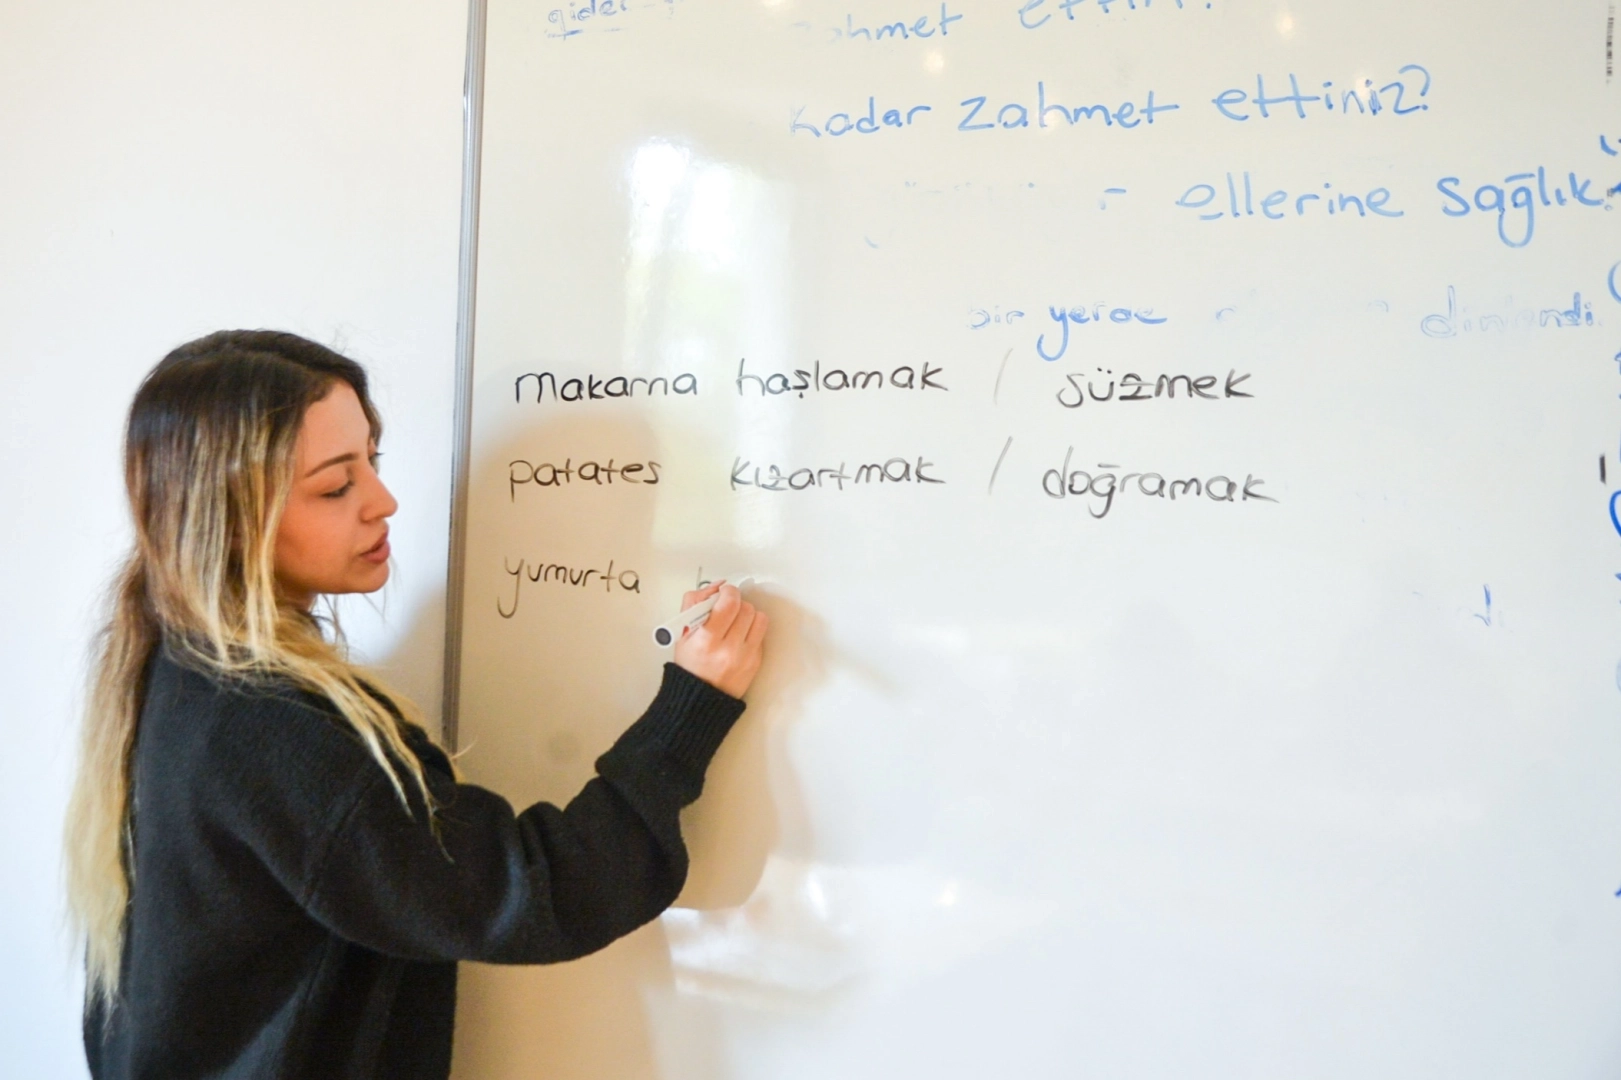 gider
zahmet ettin?
kadar zahmet ettiniz?
- ellerine sağlık
bir yerde
makarna haşlamak / süzmek
patates kızartmak / doğramak
yumurta h